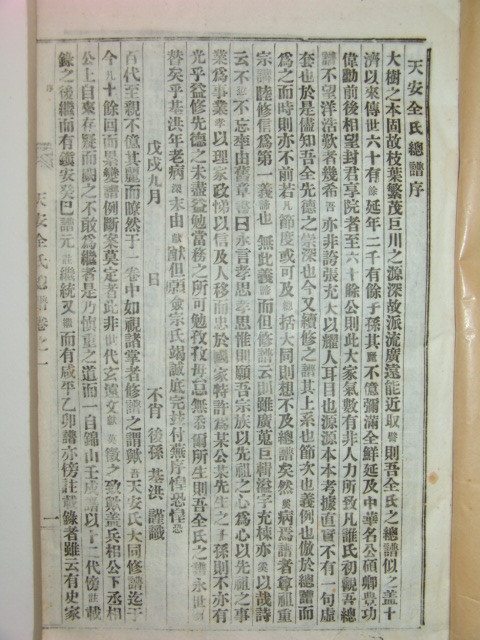 天安全氏總譜序
大樹之本固故枝葉繁茂巨川之源深故派流廣遠能近取譬則吾全氏之總譜似之蓋十
濟以來傳世六十有餘延年二千有餘子孫其麗不億彌滿全鮮延及中華名公碩卿豊功
偉勳前後相望封君享院者至六十餘公則此大家氣數有非人力所致凡誰氏初觀吾總
譜不望洋浩歎者幾希吾亦非誇張充大以耀人耳目也源源本本考據直實不有一句虛
套也於是儘知吾全先德之崇深也今又續修之譜其上系也節次也義例也倣於總譜而
爲之而時則亦不前若凡節度或可及括大同則想不及總譜矣然病焉譜者尊祖重
宗講睦修信爲第一義譜也無此義而但修譜云則雖廣蒐巨輯溢字充棟亦奚以哉詩
云不愆不忘率由舊章書曰永言孝思孝思惟則願吾宗族以先祖之心爲心以先祖之事
業爲事業孝以理家政悌以信及人移而忠於國家特許爲某公某先生之子孫則不亦有
光乎益修先德之未盡益勉當務之所可勉孜孜毋怠無忝爾所生則吾全氏之譜永世
替矣乎基洪年老病未由獻猷但願僉宗氏竭誠底完裝付無序惶恐惶恐
戊戌九月 日 不肖 後孫 基洪 謹識
百代至親不億其麗而瞭然于一卷中如視諸掌者修譜之謂歟吾天安氏大同修譜迄于
今凡十餘回而累變譜例斷案莫定者此非世代玄遠文獻莫徵之致歟蓋兵相公下丞相
公上自來存疑而闕之不敢爲繼者是乃愼重之道而一自錦山壬戌譜以十二代傍註載
錄之後繼而有鎭安癸巳譜元註繼統又而有咸平乙卯譜亦傍註載錄者雖云有史家
天安全氏總譜卷之一
一